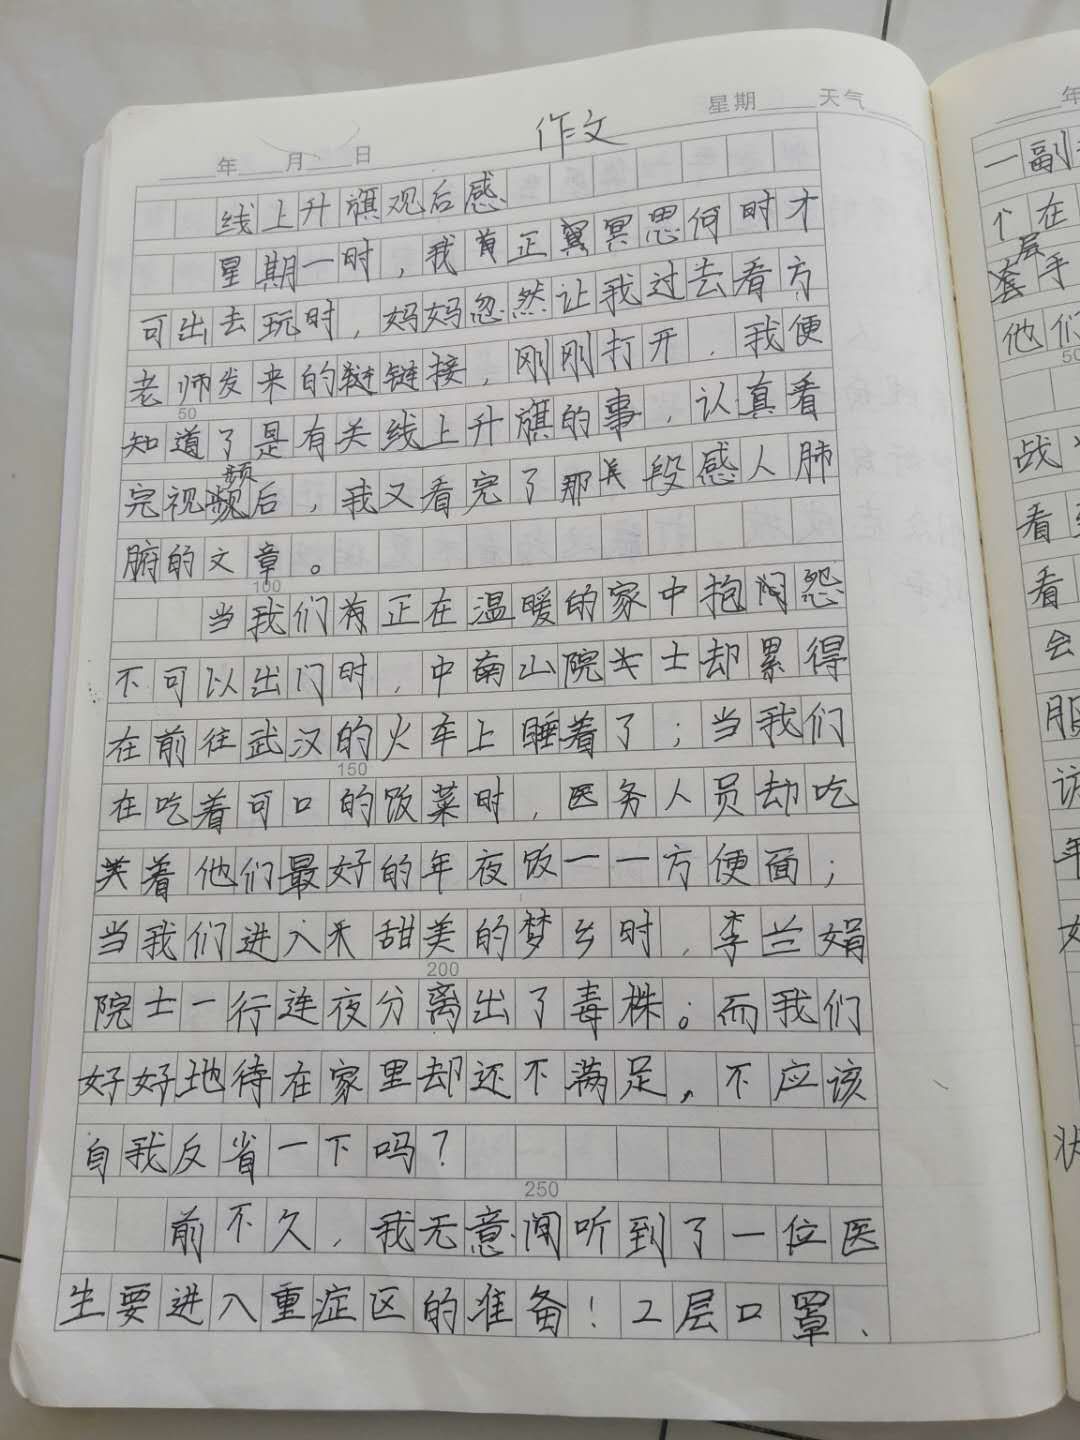 星期 天气
年 月 日 作文
线上升旗观后感
星期一时，我首正冥思何时才
可出去玩时，妈妈忽然让我过去看方
老师发来的链链接，刚刚打开，我便
50
知道了是有关线上升旗的事，认真看
完视频后，我又看完了那段感人肺
腑的文章。
100
当我们有正在温暖的家中抱怨
不可以出门时，中南山院士却累得
在前往武汉的火车上睡着了；当我们
150
在吃着可口的饭菜时，医务人员却吃
着他们最好的年夜饭一一方便面；
当我们进入甜美的梦乡时，李兰娟
200
院士一行连夜分离出了毒株。而我们
好好地待在家里却还不满足，不应该
自我反省一下吗？
250
前不久，我无意间听到了一位医
生要进入重症区的准备！2层口罩、
年
一副
个在
套层手
他们
50
战
看
看
会
服
年
状